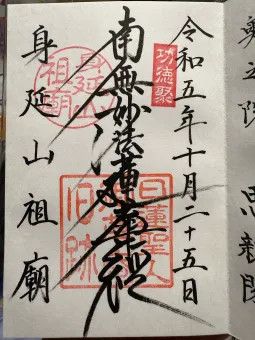 令和五年十月二十五日
功徳聚
南無妙法蓮華経
身延山
祖廟
日蓮聖人
旧跡
身延山祖廟